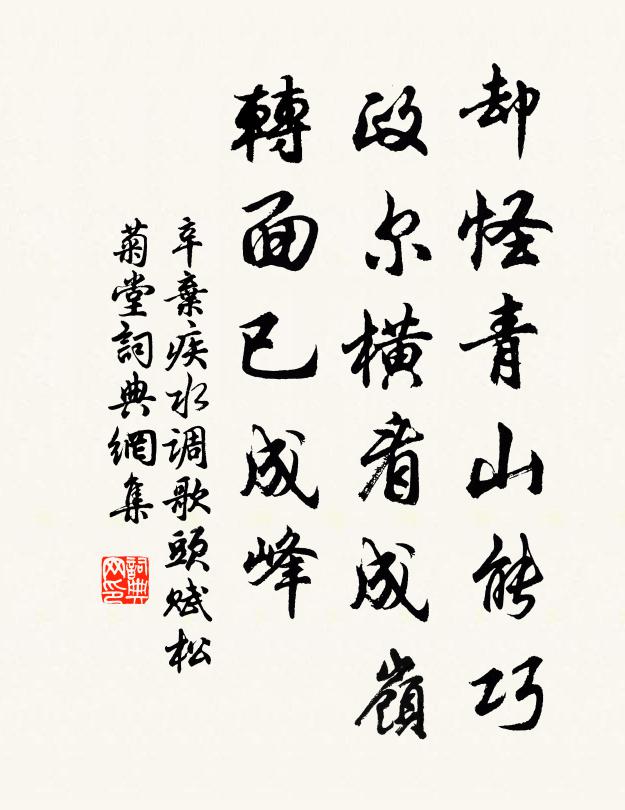 却怪青山能巧
政尔橫看成嶺
轉面已成峰
辛棄疾水调歌頭賦松
菊堂詞典網集
詞典网印